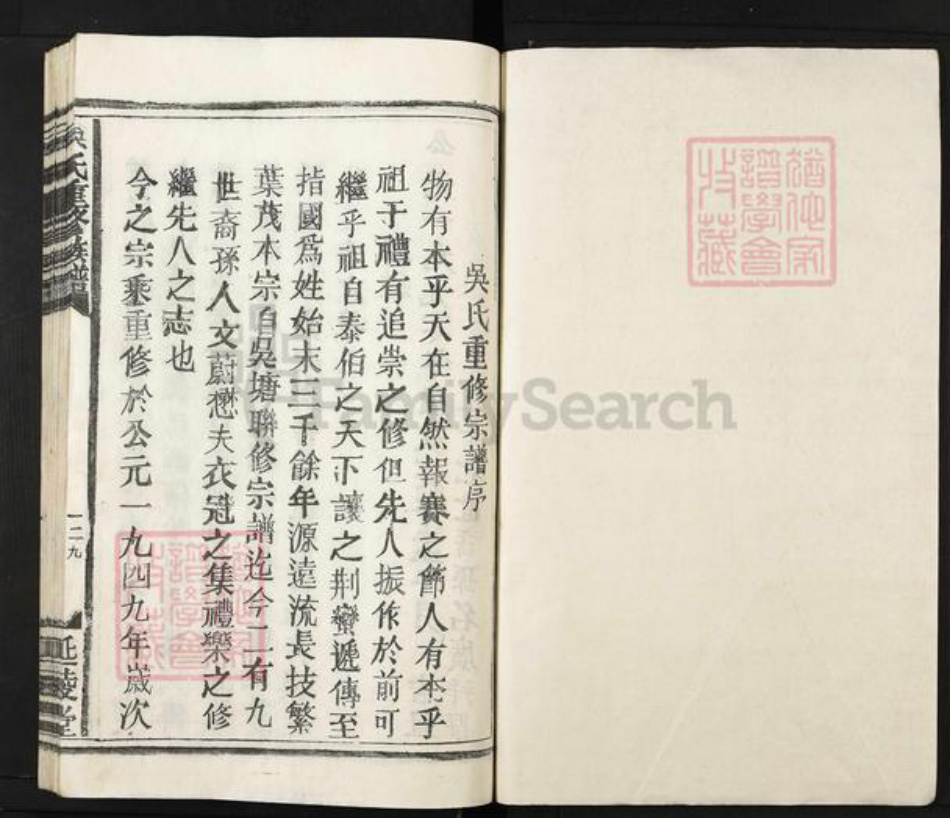 吳氏重修宗譜序
物有本乎天在自然報賽之節人有本乎
祖于禮有追崇之修但先人振作於前可
繼乎祖自泰伯之天下讓之荆蠻遞傳至
指國爲姓始末三千餘年源遠流長技繁
葉茂本宗自吳塘聯修宗譜迄今二有九
世裔孫人文蔚懋夫衣冠之集禮樂之修
繼先人之志也
今之宗乘重修於公元一九四九年歲次
吳氏重修族譜
一二九
延陵堂
譜學會
收藏
FamilySearch